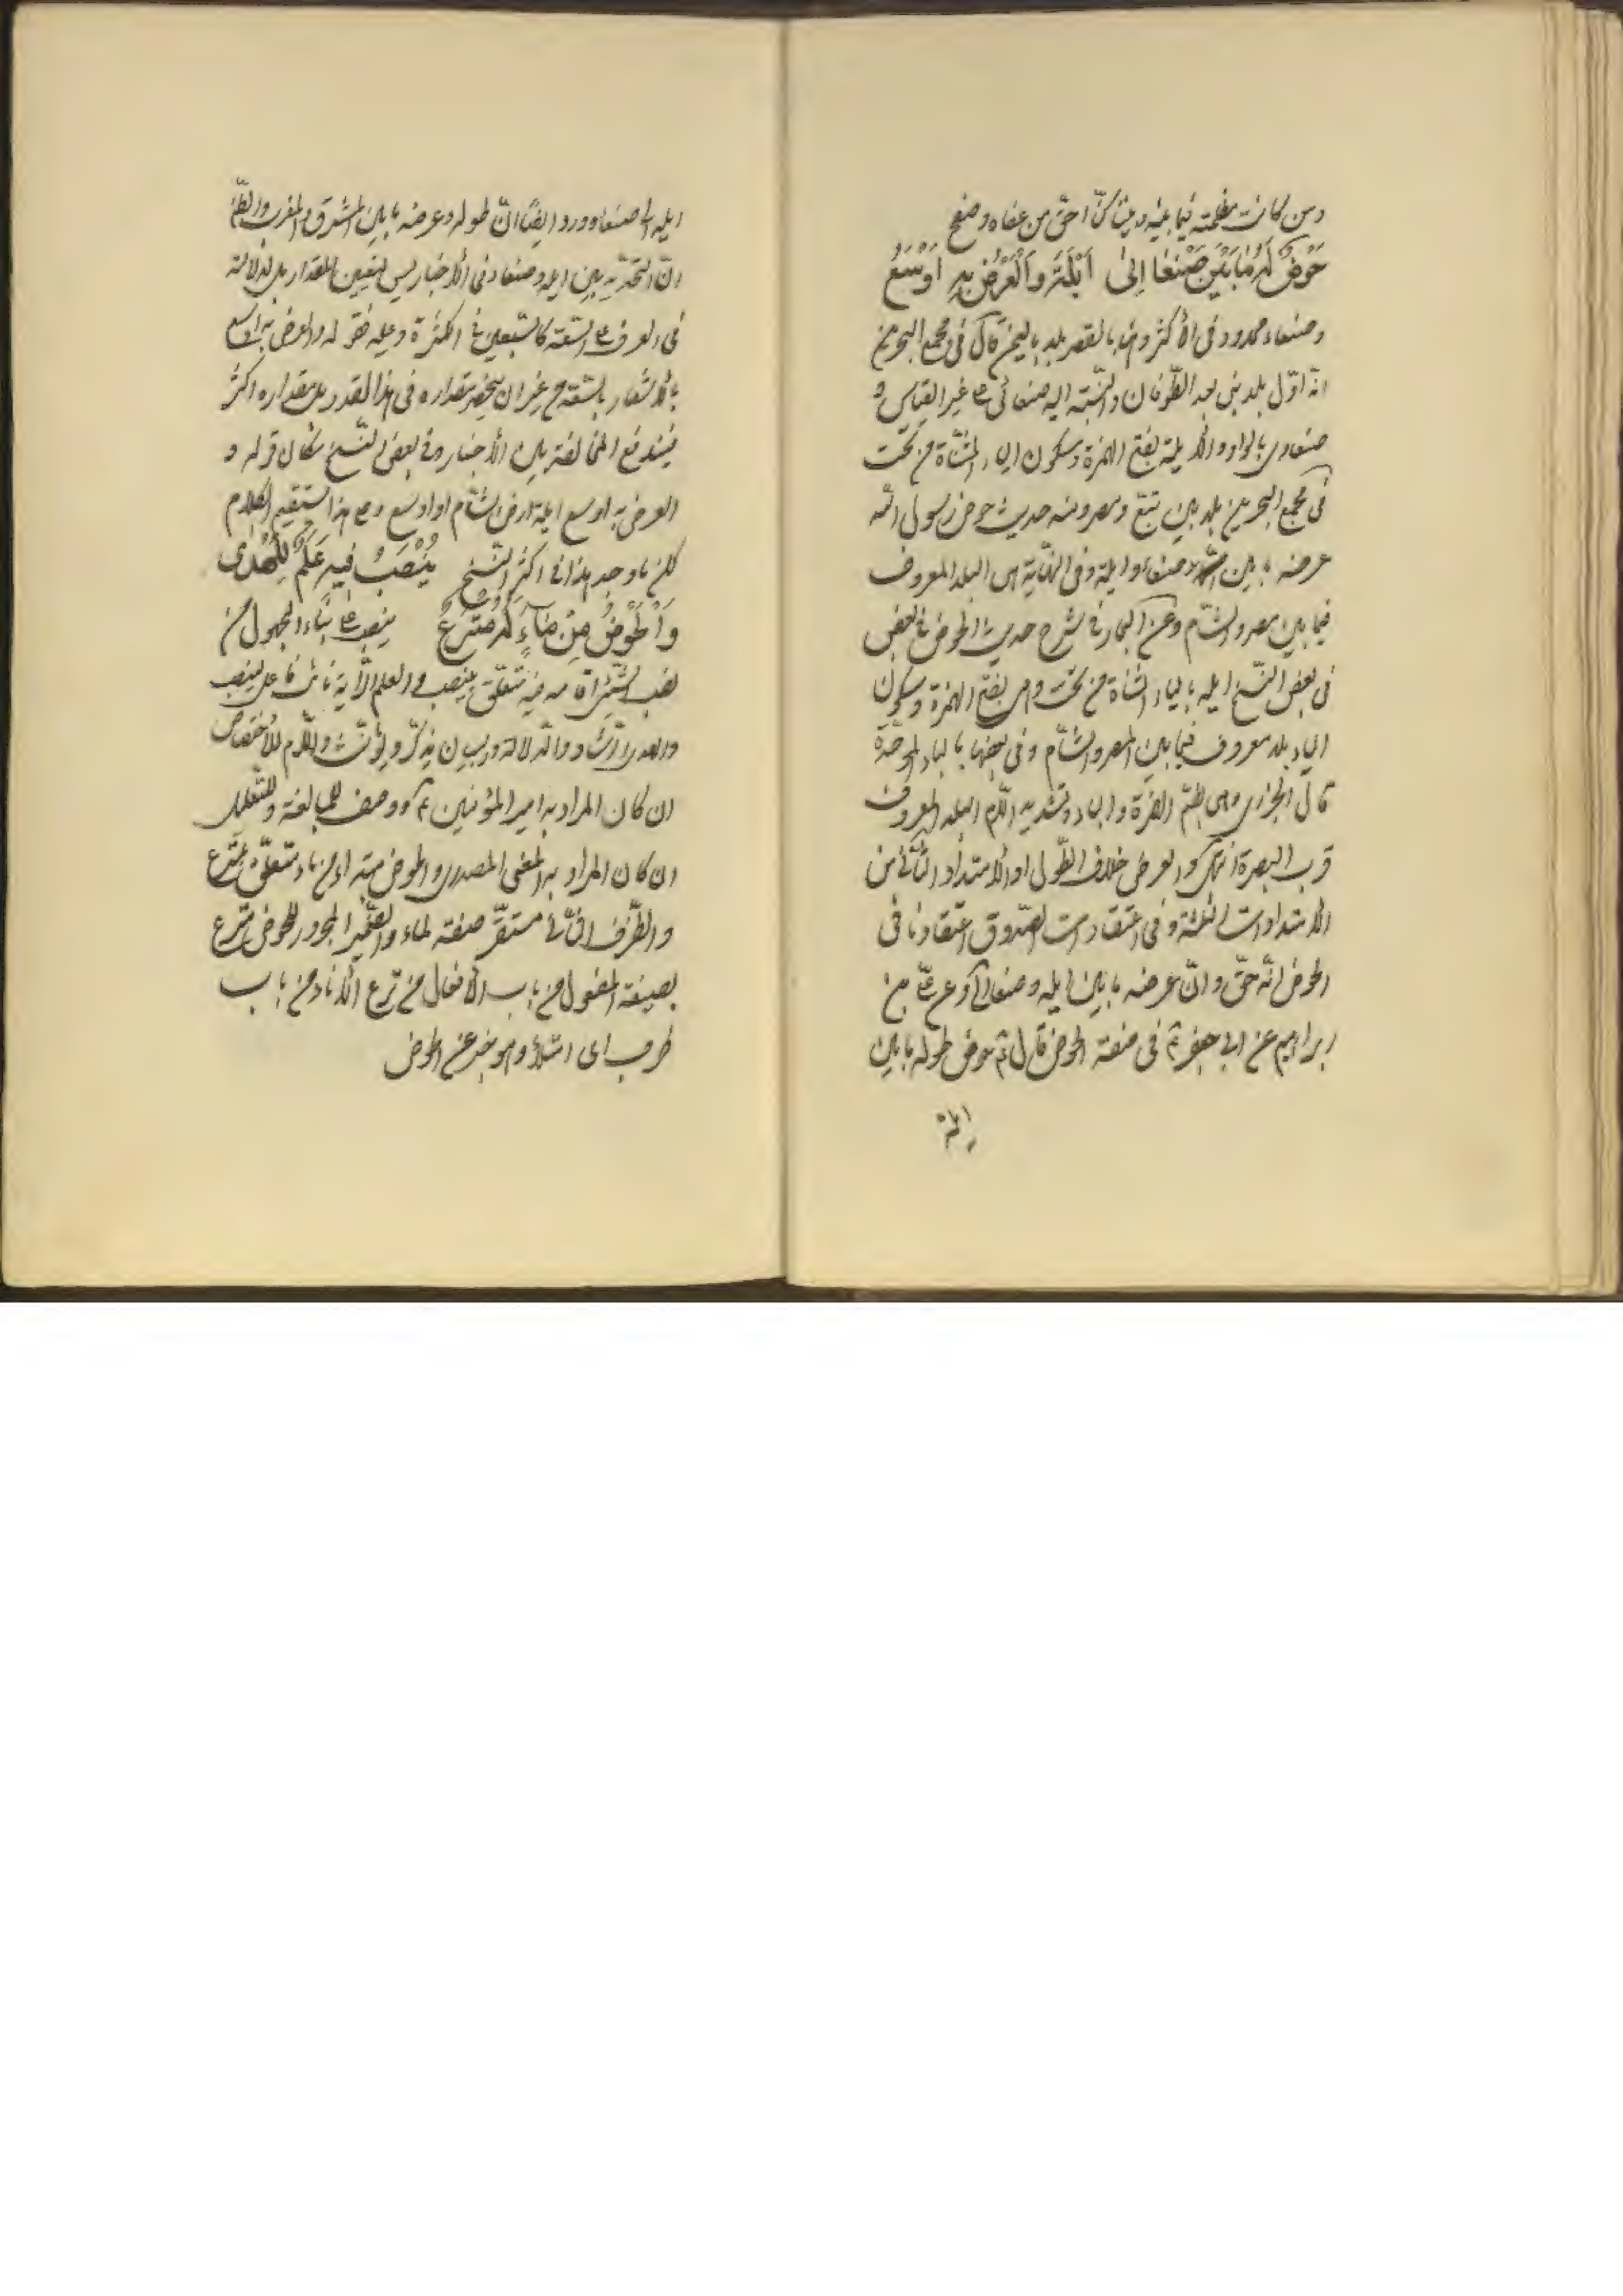 ومن كانت مظلمته فيما بينه وبيننا كنّا احقّ من عفاه وصفح
حَوْضٌ لَهُ مٰا بَيْنَ صَنْعٰا اِلىٰ اَيْلَةَ وَالْعَرْضُ بِهِ اَوْسَعُ
وصنعاء ممدود فى الأكثر وهنا بالقصر بلد باليمن قال فى مجمع البحرين
انّه اوّل بلد بنى بعد الطّوفان والنّسبة اليه صنعانى على غير القياس و
صنعاوى بالواو والأيلة بفتح الهمزة وسكون الياء المثنّاة من تحت
فى مجمع البحرين بلد بين ينبع ومصر ومنه حديث حوض رسول الله
عرضه ما بين صنعاء وايلة وفى النّهاية هى البلد المعروف
فيما بين مصر والشّام وعن البحار فى شرح حديث الحوض فى بعض
فى بعض النّسخ ايله بالياء المثنّاة من تحت وهى بفتح الهمزة وسكون
الياء بلد معروف فيما بين المصر والشّام وفى بعضها بالباء الموحّدة
قال الجزرى وهى بضمّ الهمزة والباء وتشديد اللّام البلد المعروف
قرب البصرة انتهى والعرض خلاف الطّول او الأمتداد الثّانى من
الأمتدادات الثلثة وفى اعتقادات الصّدوق اعتقادنا فى
الحوض انّه حقّ وانّ عرضه ما بين ايله وصنعا آه وعن علىّ بن
ابراهيم عن ابى جعفر فى صفة الحوض قال هو حوض طوله ما بين
ايلة
ايله الى صنعاء وورد ايضًا انّ طوله وعرضه ما بين المشرق والمغرب والظّاهر
انّ التحديد بين ايله وصنعاء فى الأخبار ليس لتعيين المقدار بل لدلالته
فى العرف على السّعة كالسّبعين فى الكثرة وعليه فقوله والعرض به اوسع
بالأشعار بالسّعة من غير ان ينحصر مقداره فى هذا القدر بل مقداره اكثر
فيندفع المخالفة بين الأخبار وفى بعض النّسخ مكان قوله و
العرض به اوسع ايلة ارض الشّام او اوسع ومع هذا يستقيم الكلام
لكن ما وجد هذا فى اكثر النّسخ يُنْصَبُ فِيهِ عَلَمٌ لِلْهُدىٰ
وَالْحَوْضُ مِنْ مٰاءٍ لَهُ مُتْرَعٌ ينصب على بناء المجهول من
نصب الشّىء اقامه فيه متعلّق بينصب والعلم الرّاية نائب فاعل لينصب
والهدى الرّشاد والدّلالة والبيان يذكّر ويؤنّث واللّام للأختصاص
ان كان المراد به امير المؤمنين ووصف للمبالغة وللتّعليل
ان كان المراد به المعنى المصدرى والحوض مبتدا ومن ماء متعلّق بمترع
والظّرف الثّانى مستقرّ صفة لماء والضّمير المجرور للحوض مترع
بصيغة المفعول من باب الأفعال من ترع الأناء من باب
طرب اى امتلأ وهو خبر عن الحوض